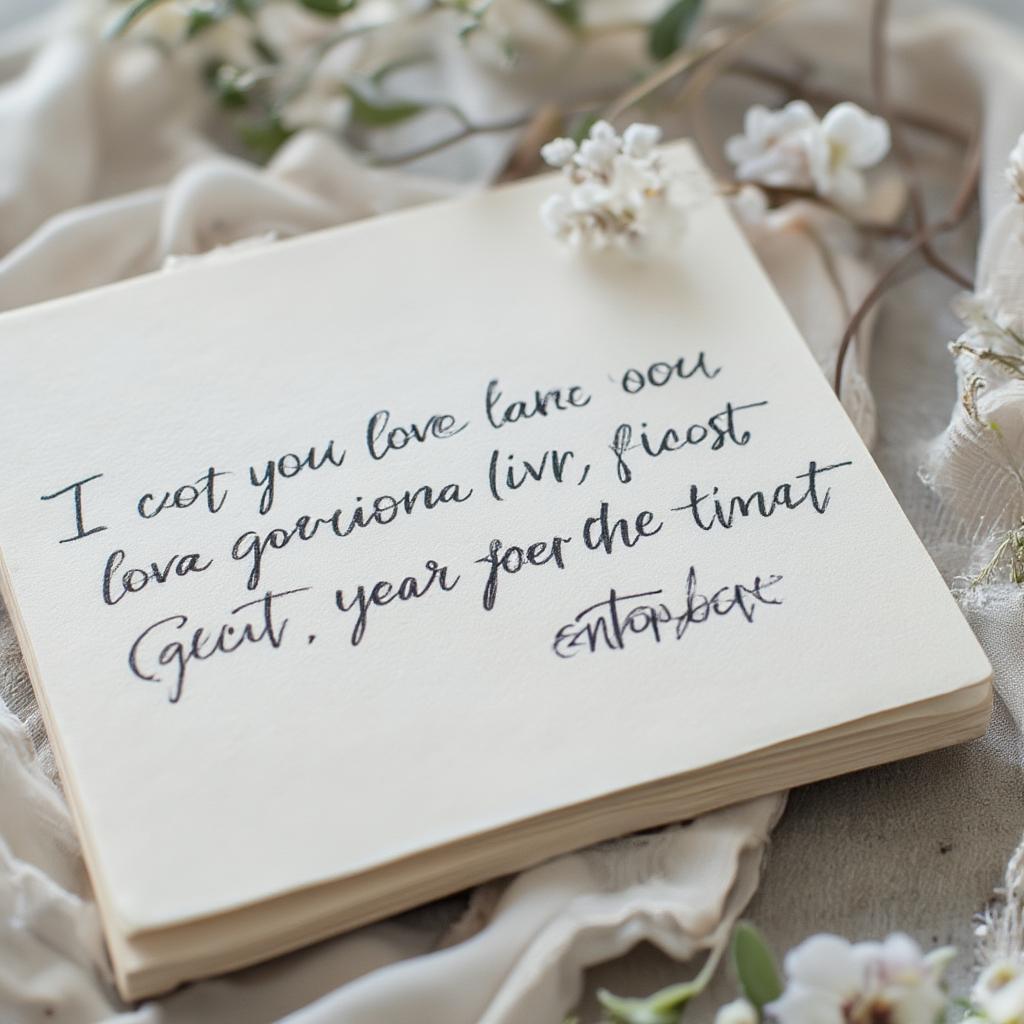 I cot you love tane oou
lova goouriona livr, ficost
Gecit, year foer the tinat
entop bept